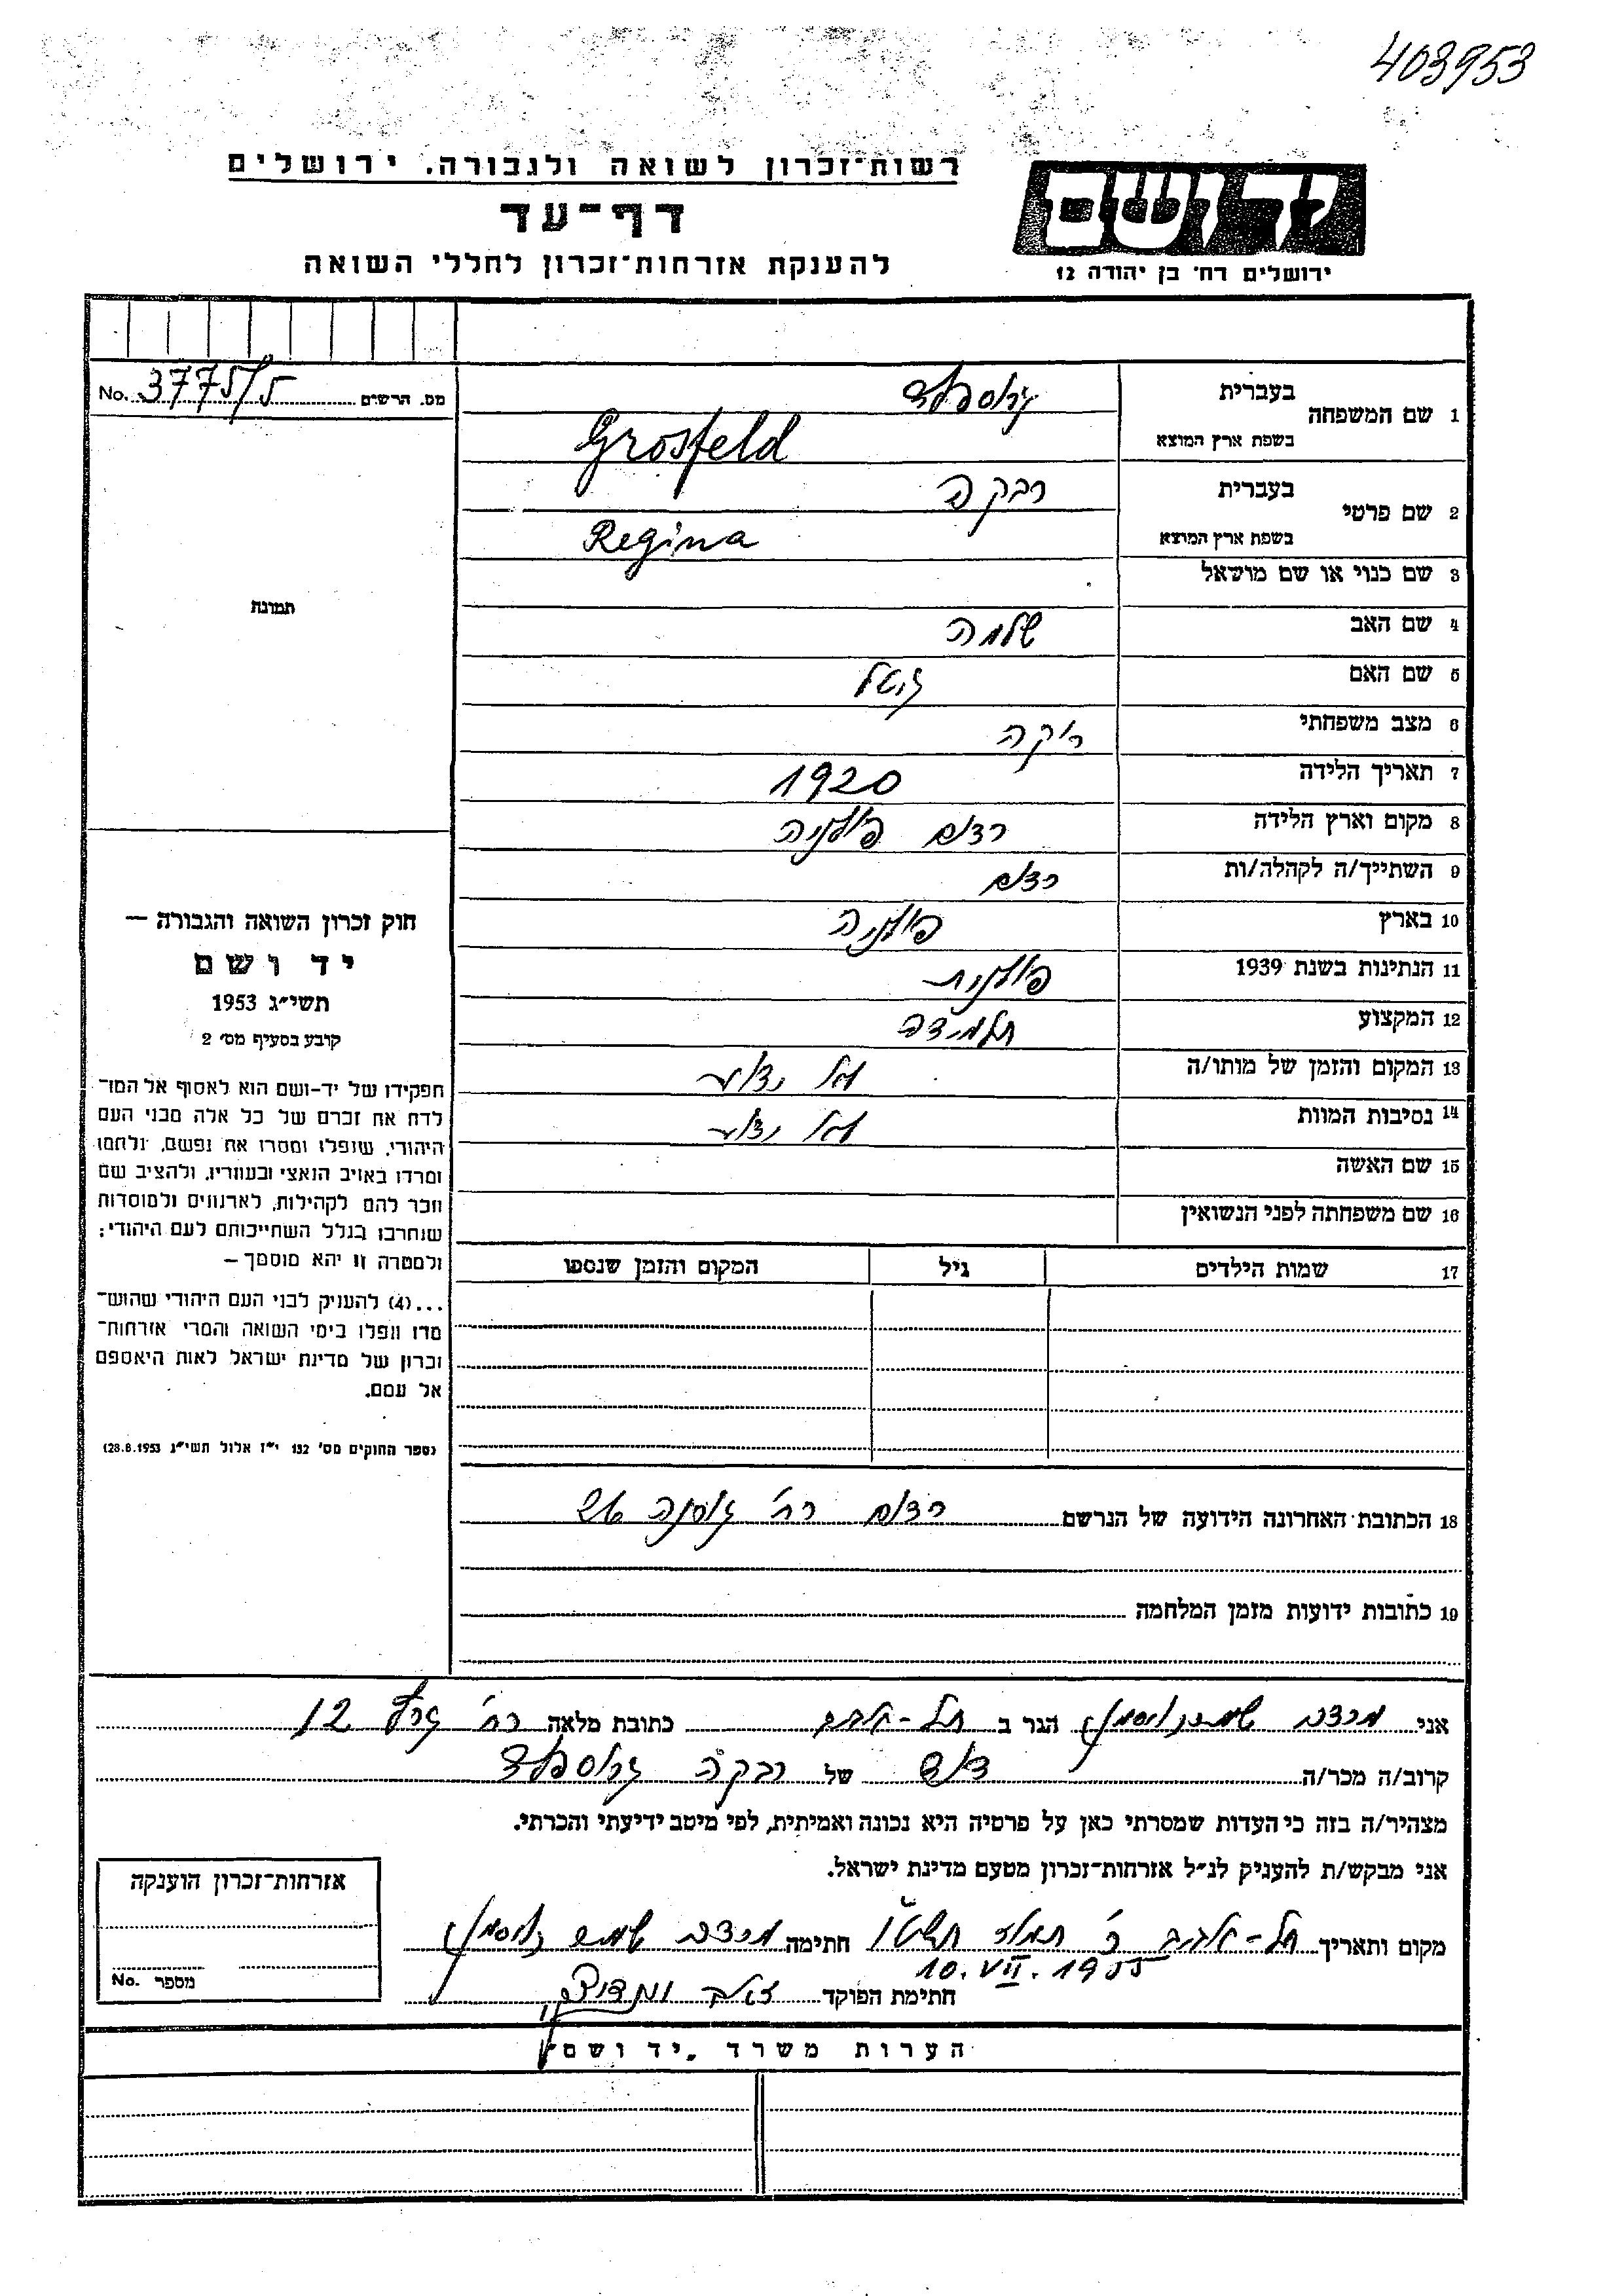 403953
רשות־זכרון לשואה ולגבורה, ירושלים
דף־עד
להענקת אזרחות־זכרון לחללי השואה
ידושם
ירושלים רח׳ בן יהודה 12
מס. הרשים No. 3775/5
1 שם המשפחה בעברית גרוספלד
בשפת ארץ המוצא Grosfeld
2 שם פרטי בעברית רבקה
בשפת ארץ המוצא Regina
3 שם כנוי או שם מושאל
4 שם האב שלמה
5 שם האם גיטל
6 מצב משפחתי רוקה
7 תאריך הלידה 1920
8 מקום וארץ הלידה רדום פולניה
9 השתייך/ה לקהלה/ות רדום
10 בארץ פולניה
11 הנתינות בשנת 1939 פולנית
12 המקצוע תלמידה
13 המקום והזמן של מותו/ה לא ידוע
14 נסיבות המוות לא ידוע
15 שם האשה
16 שם משפחתה לפני הנשואין
17 שמות הילדים גיל המקום והזמן שנספו
תמונת
חוק זכרון השואה והגבורה –
יד ושם
תשי״ג 1953
קובע בסעיף מס׳ 2
תפקידו של יד-ושם הוא לאסוף אל המו־
לדת את זכרם של כל אלה מבני העם
היהודי, שנפלו ומסרו את נפשם, נלחמו
ומרדו באויב הנאצי ובעוזריו, ולהציב שם
וזכר להם לקהילות, לארגונים ולמוסדות
שנחרבו בגלל השתייכותם לעם היהודי;
ולמטרה זו יהא מוסמך –
...(4) להעניק לבני העם היהודי שהוש־
מדו ונפלו בימי השואה והמרי אזרחות־
זכרון של מדינת ישראל לאות היאספם
אל עמם.
(ספר החוקים מס׳ 132 י״ז אלול תשי״ג 28.8.1953)
18 הכתובת האחרונה הידועה של הנרשם רדום רח׳
19 כתובות ידועות מזמן המלחמה
אני מרדכי הגר ב תל-אביב כתובת מלאה רח׳ 12
קרוב/ה מכר/ה דוד של רבקה גרוספלד
מצהיר/ה בזה כי העדות שמסרתי כאן על פרטיה היא נכונה ואמיתית, לפי מיטב ידיעתי והכרתי.
אני מבקש/ת להעניק לנ״ל אזרחות־זכרון מטעם מדינת ישראל.
מקום ותאריך תל-אביב כ׳ תמוז תשט״ו חתימה מרדכי
10.VII.1955
חתימת הפוקד
אזרחות־זכרון הוענקה
מספר No.
הערות משרד „יד ושם"